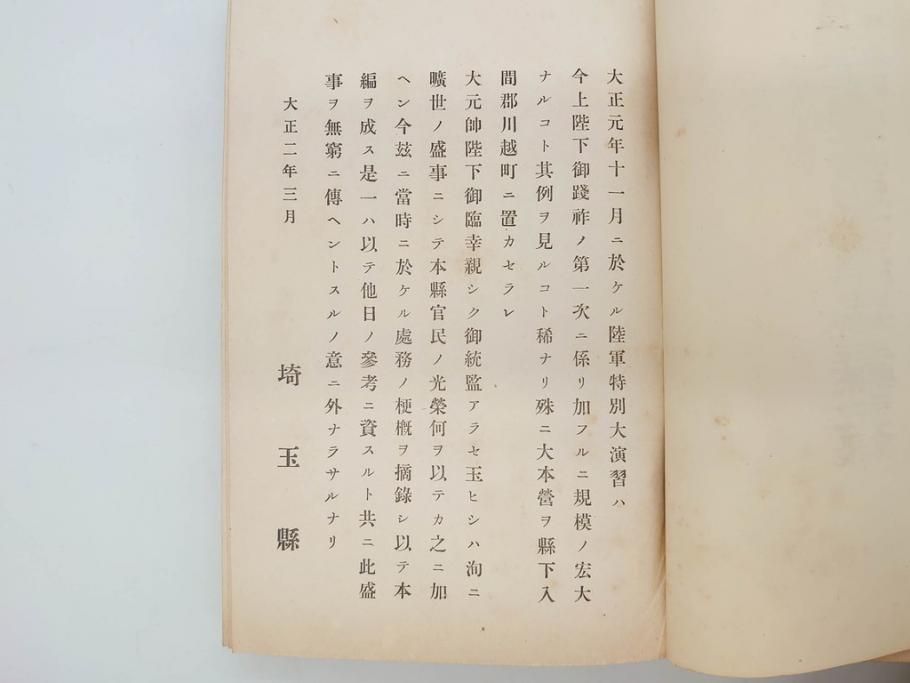 大正元年十一月ニ於ケル陸軍特別大演習ハ
今上陛下御踐祚ノ第一次ニ係リ加フルニ規模ノ宏大
ナルコト其例ヲ見ルコト稀ナリ殊ニ大本營ヲ縣下入
間郡川越町ニ置カセラレ
大元帥陛下御臨幸親シク御統監アラセ玉ヒシハ洵ニ
曠世ノ盛事ニシテ本縣官民ノ光榮何ヲ以テカ之ニ加
ヘン今玆ニ當時ニ於ケル處務ノ梗槪ヲ摘錄シ以テ本
編ヲ成ス是一ハ以テ他日ノ參考ニ資スルト共ニ此盛
事ヲ無窮ニ傳ヘントスルノ意ニ外ナラサルナリ
大正二年三月
埼玉縣